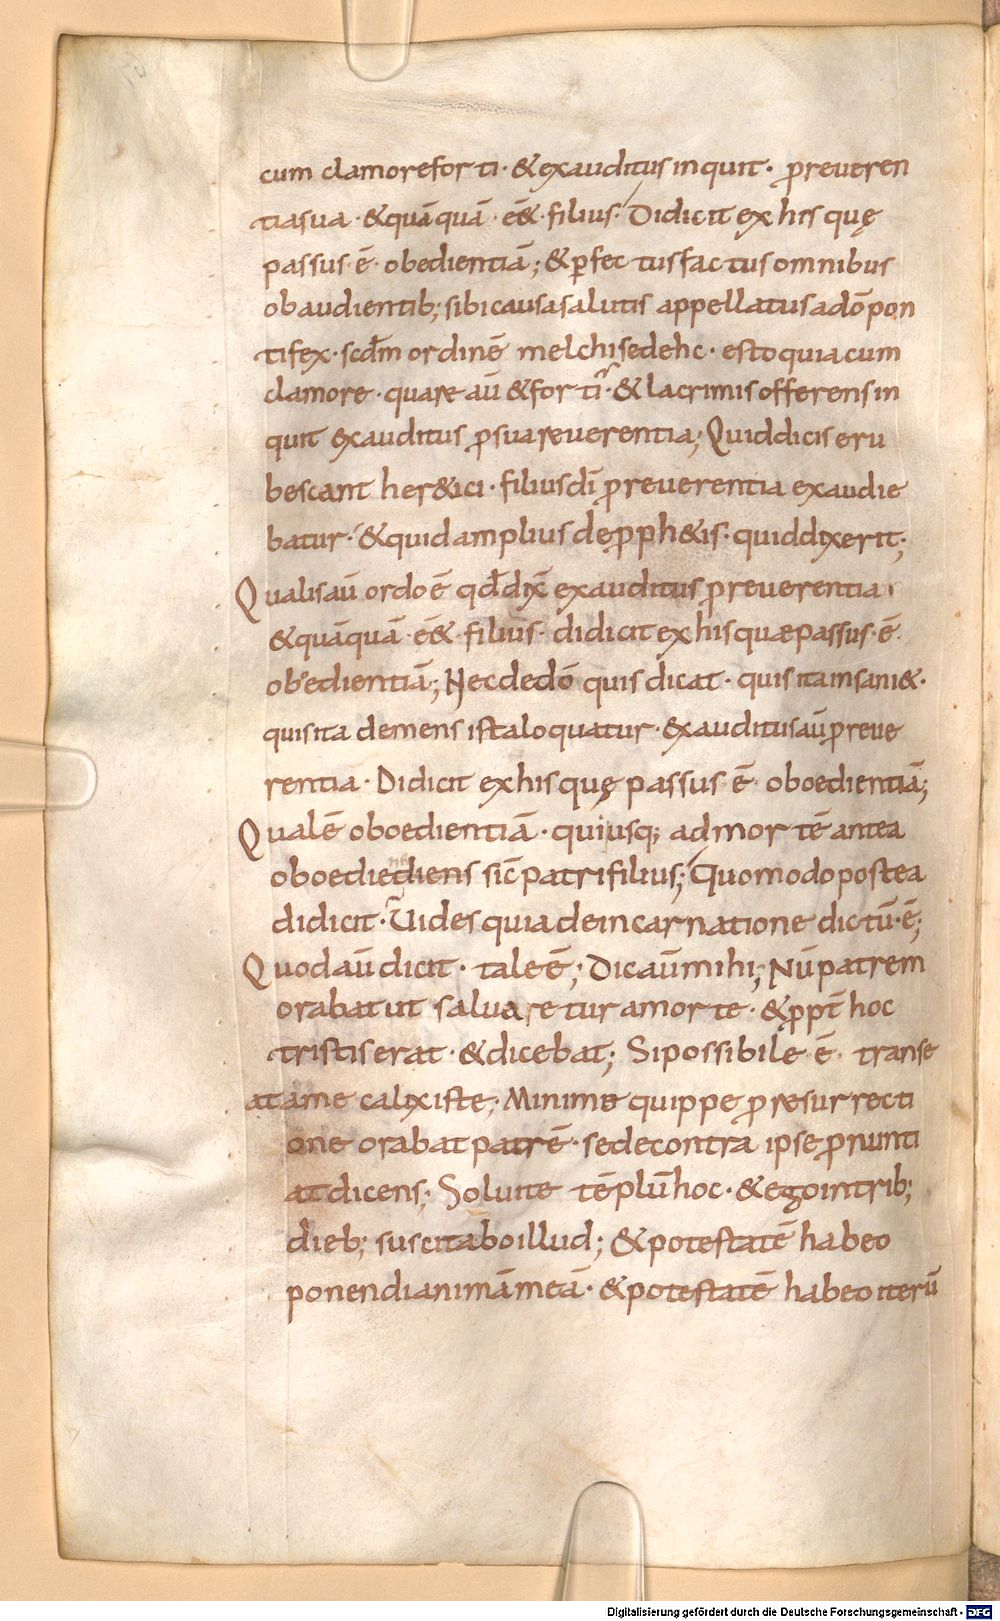 cum clamore for ti · & exauditus inquit · p reueren
tia sua · & quāquā · eē& · filius · Didicit ex his quę
passus · ē · obedientiā ; & pfec tus fac tus omnibus
obaudientib; sibi causa salutis appellatus a dō pon
tifex · scdm ordinē melchisedehc · esto quia cum
clamore · quare aū & for ti · & lacrimis offerens in
quit exauditus p sua reuerentia ; Quid dicis eru
bescant her&ici · filius dī p reuerentia exaudie
batur · & quid amplius de pph&is · quid dixerit ;
Qualis aū ordo ē qd dix̄ exauditus p reuerentia ·
& quāquā · eē& · filius · didicit ex his quae passus · ē ·
obedientiā ; Nec de dō quis dicat · quis ita insani& ·
quis ita demens ista loquatur · exauditus aū p reue
rentia · Didicit ex his quę passus · ē · oboedientiā ;
Qualē oboedientiā · qui usq; ad mor tē antea
oboediediens sic patri filius ; Quomodo postea
didicit · Uides quia de incarnatione dictū · ē ;
Quod aū dicit · tale ē ; Dic aū mihi ; Nū patrem
orabat ut saluare tur a mor te · & ppt hoc
tristis erat · & dicebat ; Si possibile · ē · transe
at a me calix iste ; Minime quippe p resurrecti
one orabat patrē · sed e contra ipse pnunti
at dicens ; Soluite tēplū hoc · & ego in trib;
dieb; suscitabo illud ; & potestatē habeo
ponendi animā meā · & potestatē habeo iterū
Digitalisierung gefördert durch die Deutsche Forschungsgemeinschaft - DFG